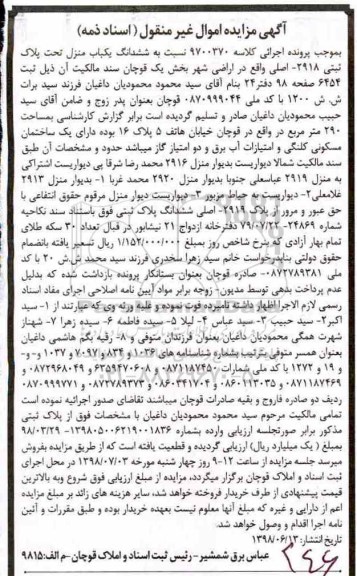 آگهی مزایده اموال غیر منقول (اسناد ذمه)
بموجب پرونده اجرائی کلاسه ۹۷۰۰۳۷۰ نسبت به ششدانگ یکباب منزل تحت پلاک
ثبتی ۲۹۱۸- اصلی واقع در اراضی شهر بخش یک قوچان سند مالکیت آن ذیل ثبت
۶۴۵۴ صفحه ۹۸ دفتر ۲۴ بنام آقای سید محمود محمودیان داغیان فرزند سید برات
ش. ش ۱۲۰۰ با کد ملی ۰۸۷۰۹۹۹۰۴۴ قوچان بعنوان پدر زوج و ضامن آقای سید
حبیب محمودیان داغیان صادر و تسلیم گردیده است برابر گزارش کارشناسی بمساحت
۲۹۰ متر مربع در واقع در قوچان خیابان هاتف ۵ پلاک ۱۶ بوده دارای یک ساختمان
مسکونی کلنگی و امتیازات آب برق و دو امتیاز گاز میباشد حدود و مشخصات آن طبق
سند مالکیت شمالا دیواریست بدیوار منزل ۲۹۱۶ محمد رضا شرقا پی دیواریست اشتراکی
به منزل ۲۹۱۹ عباسعلی جنوبا بدیوار منزل ۲۹۲۰ محمد غربا ۱- بدیوار منزل ۲۹۱۳
غلامعلی ۲- دیواریست به حیاط مزبور ۳- دیواریست دیوار منزل مرقوم حقوق انتفاعی با
حق عبور و مرور از پلاک ۲۹۱۴- اصلی ششدانگ پلاک ثبتی فوق باستناد سند نکاحیه
شماره ۲۴۸۶۹- ۷۹/۰۷/۲۲ دفترخانه ازدواج ۲۱ نیشابور در قبال تعداد ۳۰ سکه طلای
تمام بهار آزادی که بنرخ شاخص روز بمبلغ ۱/۱۵۲/۰۰۰/۰۰۰ ریال تسعیر یافته بانضمام
حقوق دولتی بنابدرخواست خانم سید زهرا سخدری فرزند سید محمد ش.ش ۲۰ با کد
ملی ۰۸۷۲۷۸۹۳۸۱ صادره قوچان بعنوان بستانکار پرونده بازداشت شده که بدلیل
عدم پرداخت بدهی توسط مدیون - زوجه برابر مواد آیین نامه اصلاحی اجرای مفاد اسناد
رسمی لازم الاجرا اظهار داشته نامبرده فوت نموده و علیه ورثه وی که عبارتند از ۱- سید
اکبر ۲- سید حبیب ۳- سید عباس ۴- لیلا ۵- سیده فاطمه ۶- سیده زهرا ۷- شهناز
شهرت همگی محمودیان داغیان بعنوان فرزندان متوفی و ۸- رقیه بگم هاشمی داغیان
بعنوان همسر متوفی بترتیب بشماره شناسنامه های ۱۰۳۶ و ۸۳۴ و ۷۰۹۷ و ۱۰۳۷ و - و-
و ۱۹ و ۱۲۷۲ با کد ملی شماره های ۰۸۷۱۱۸۷۴۵۰
ردیف دو صادره فاروج و بقیه صادرات قوچان میباشتند تقاضای صدور اجرائیه نموده است
تمامی مالکیت مرحوم سید محمود محمودیان داغیان با مشخصات فوق از پلاک ثبتی
مذکور برابر صورتجلسه ارزیابی وارده بشماره ۱۳۹۸۰۵۰۰۶۲۱۹۰۰۱۸۳۶- ۹۸/۰۳/۲۹
بمبلغ ( یک میلیارد ریال) ارزیابی گردیده و قطعیت یافته است که از طریق مزایده بفروش
میرسد جلسه مزایده از ساعت ۱۲-۹ روز چهار شنبه مورخه ۱۳۹۸/۰۷/۰۳ در محل اجرای
ثبت اسناد و املاک قوچان برگزار میگردد، مزایده از مبلغ ارزیابی فوق شروع وبه بالاترین
قیمت پیشنهادی از طرف خریدار فروخته خواهد شد، سایر هزینه های زائد بر مبلغ مزایده
اعم از دارایی و غیره که مبلغ آنها معلوم نیست بعهده خریدار بوده و طبق مقررات و آئین
نامه اجرا اقدام و وصول خواهد شد.
تاریخ انتشار: ۱۳۹۸/۰۶/۱۳
عباس برق شمشیر - رئیس ثبت اسناد و املاک قوچان - م الف: ۹۸۱۵
۲۶۶